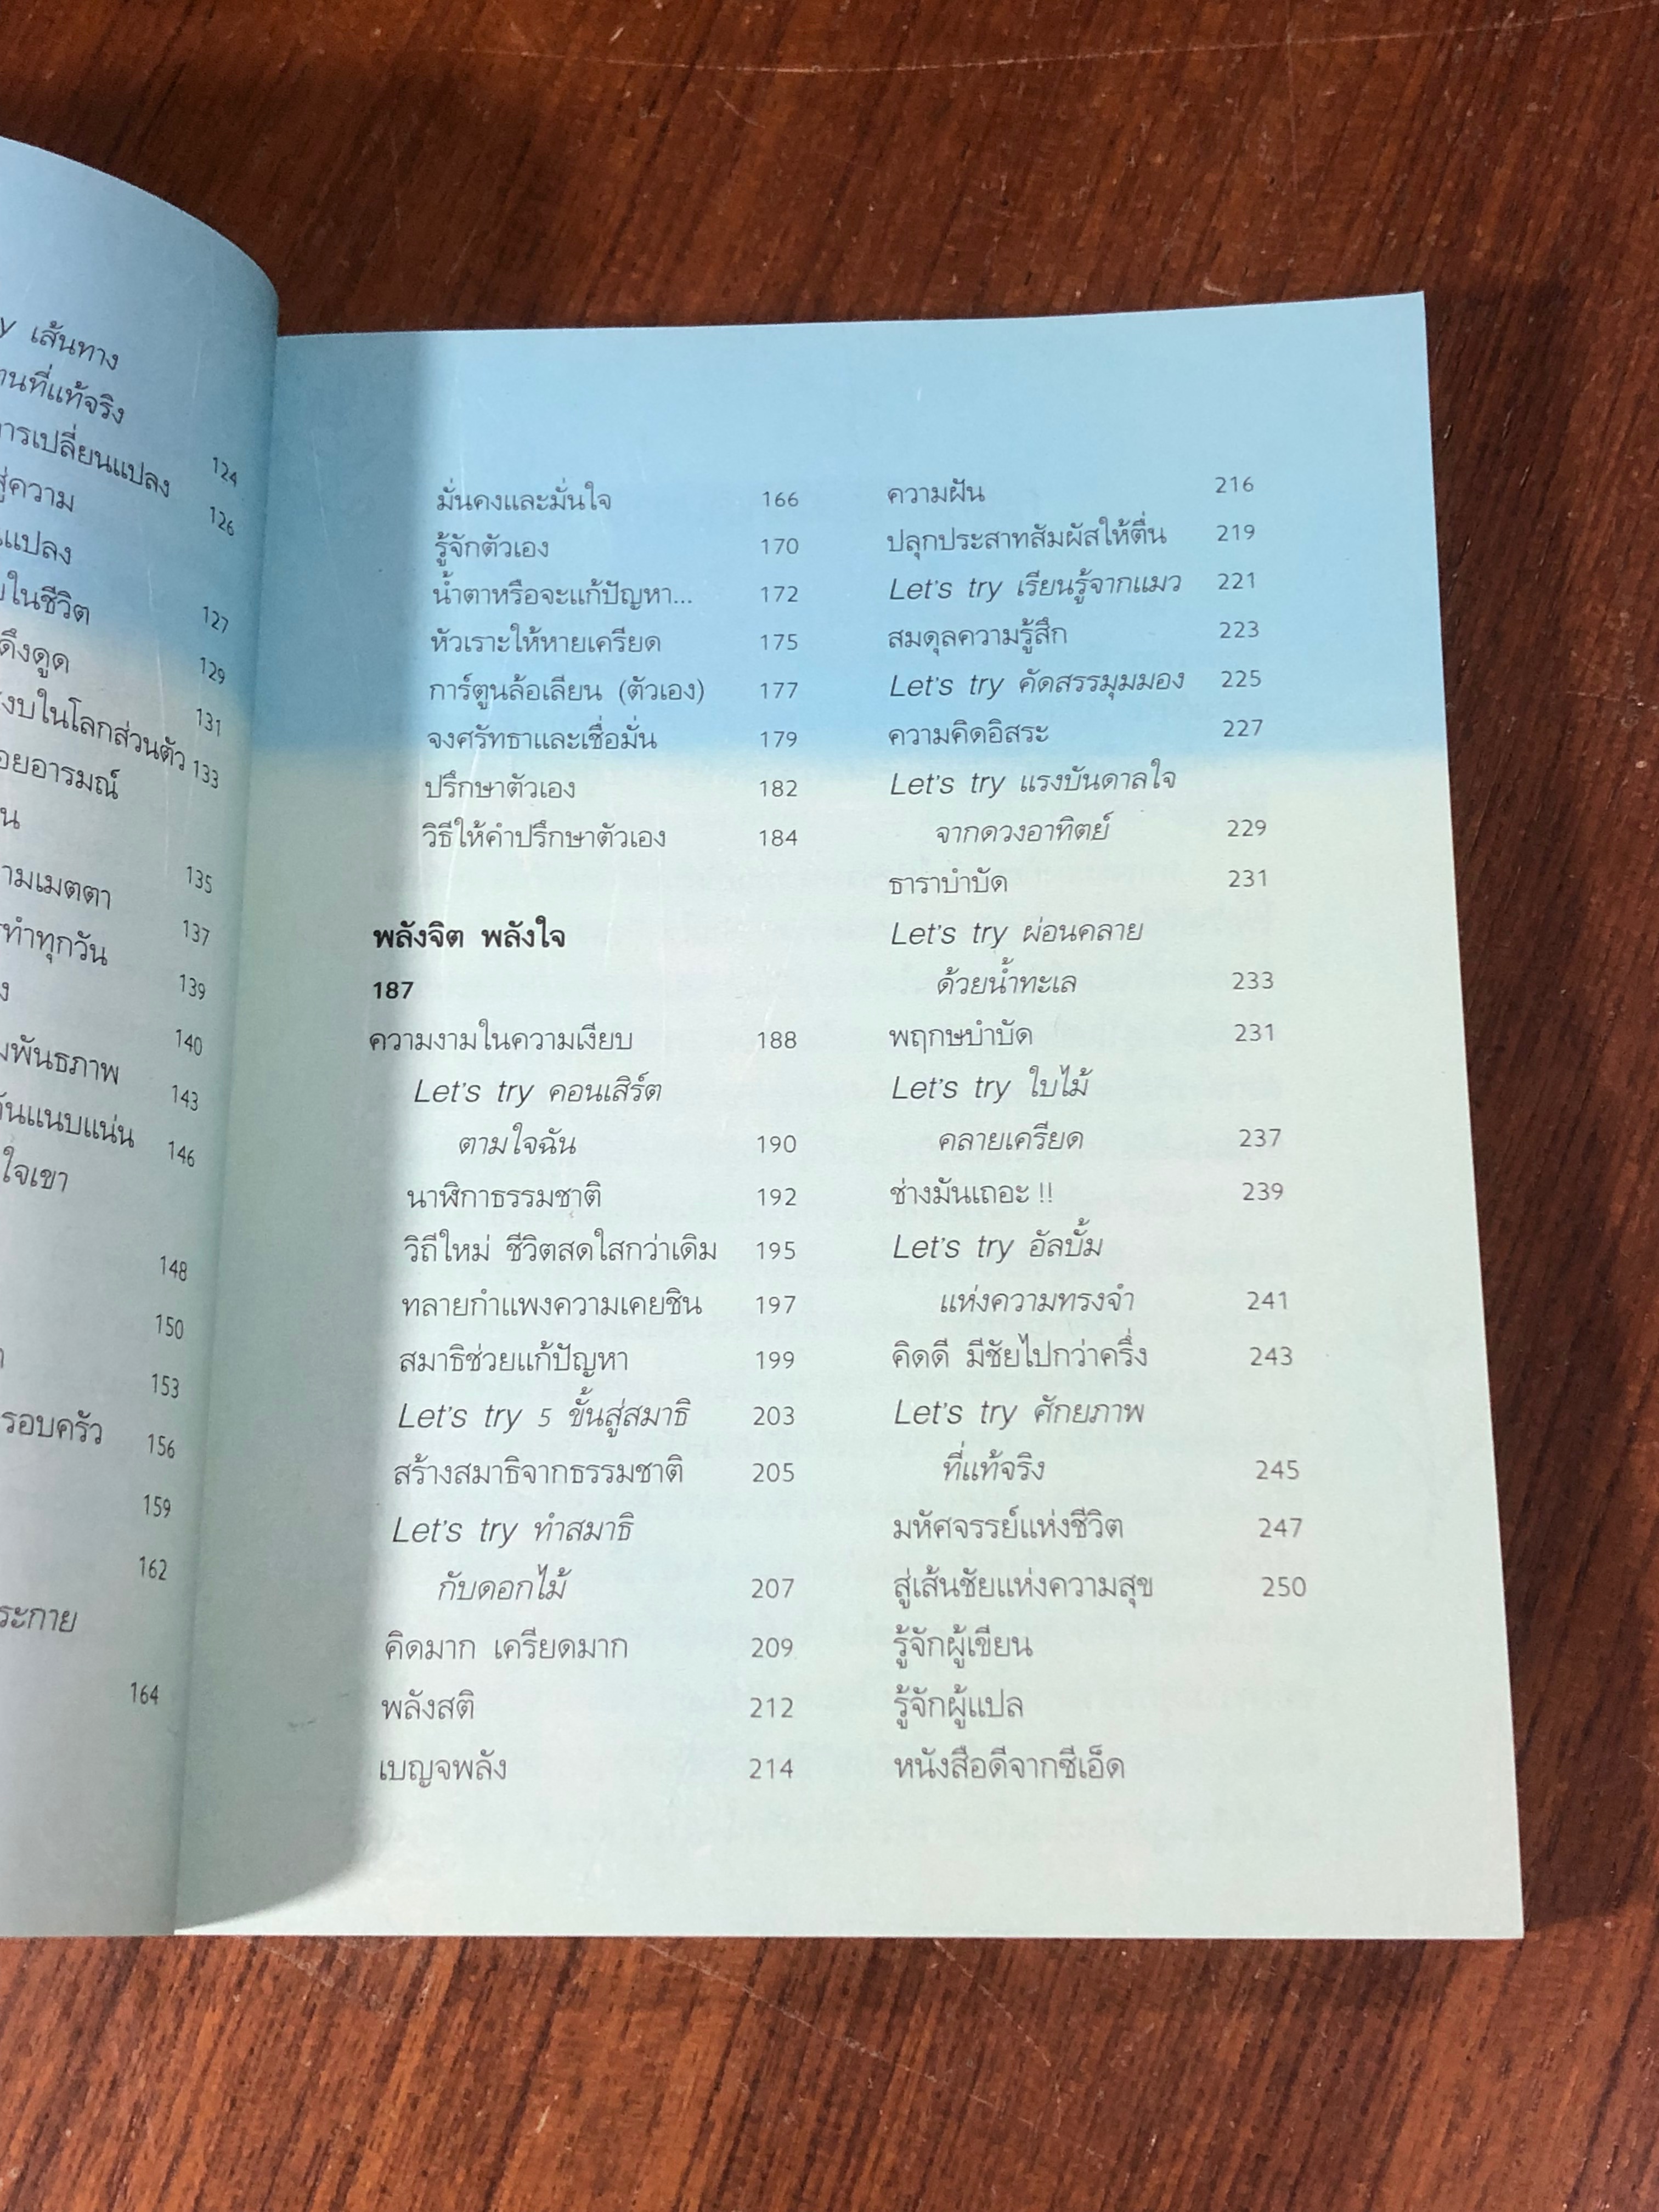 เส้นทาง
ที่แท้จริง
การเปลี่ยนแปลง 124
สู่ความ
แปลง 126
ในชีวิต 127
ดึงดูด 129
131
ในโลกส่วนตัว 133
อารมณ์
135
เมตตา 137
ทำทุกวัน 139
140
พันธภาพ 143
แนบแน่น 146
ใจเขา
148
150
153
รอบครัว 156
159
162
ระกาย
164
มั่นคงและมั่นใจ 166
รู้จักตัวเอง 170
น้ำตาหรือจะแก้ปัญหา... 172
หัวเราะให้หายเครียด 175
การ์ตูนล้อเลียน (ตัวเอง) 177
จงศรัทธาและเชื่อมั่น 179
ปรึกษาตัวเอง 182
วิธีให้คำปรึกษาตัวเอง 184
พลังจิต พลังใจ
187
ความงามในความเงียบ 188
Let's try คอนเสิร์ต
ตามใจฉัน 190
นาฬิกาธรรมชาติ 192
วิถีใหม่ ชีวิตสดใสกว่าเดิม 195
ทลายกำแพงความเคยชิน 197
สมาธิช่วยแก้ปัญหา 199
Let's try 5 ขั้นสู่สมาธิ 203
สร้างสมาธิจากธรรมชาติ 205
Let's try ทำสมาธิ
กับดอกไม้ 207
คิดมาก เครียดมาก 209
พลังสติ 212
เบญจพลัง 214
ความฝัน 216
ปลุกประสาทสัมผัสให้ตื่น 219
Let's try เรียนรู้จากแมว 221
สมดุลความรู้สึก 223
Let's try คัดสรรมุมมอง 225
ความคิดอิสระ 227
Let's try แรงบันดาลใจ
จากดวงอาทิตย์ 229
ธาราบำบัด 231
Let's try ผ่อนคลาย
ด้วยน้ำทะเล 233
พฤกษบำบัด 231
Let's try ใบไม้
คลายเครียด 237
ช่างมันเถอะ !! 239
Let's try อัลบั้ม
แห่งความทรงจำ 241
คิดดี มีชัยไปกว่าครึ่ง 243
Let's try ศักยภาพ
ที่แท้จริง 245
มหัศจรรย์แห่งชีวิต 247
สู่เส้นชัยแห่งความสุข 250
รู้จักผู้เขียน
รู้จักผู้แปล
หนังสือดีจากซีเอ็ด